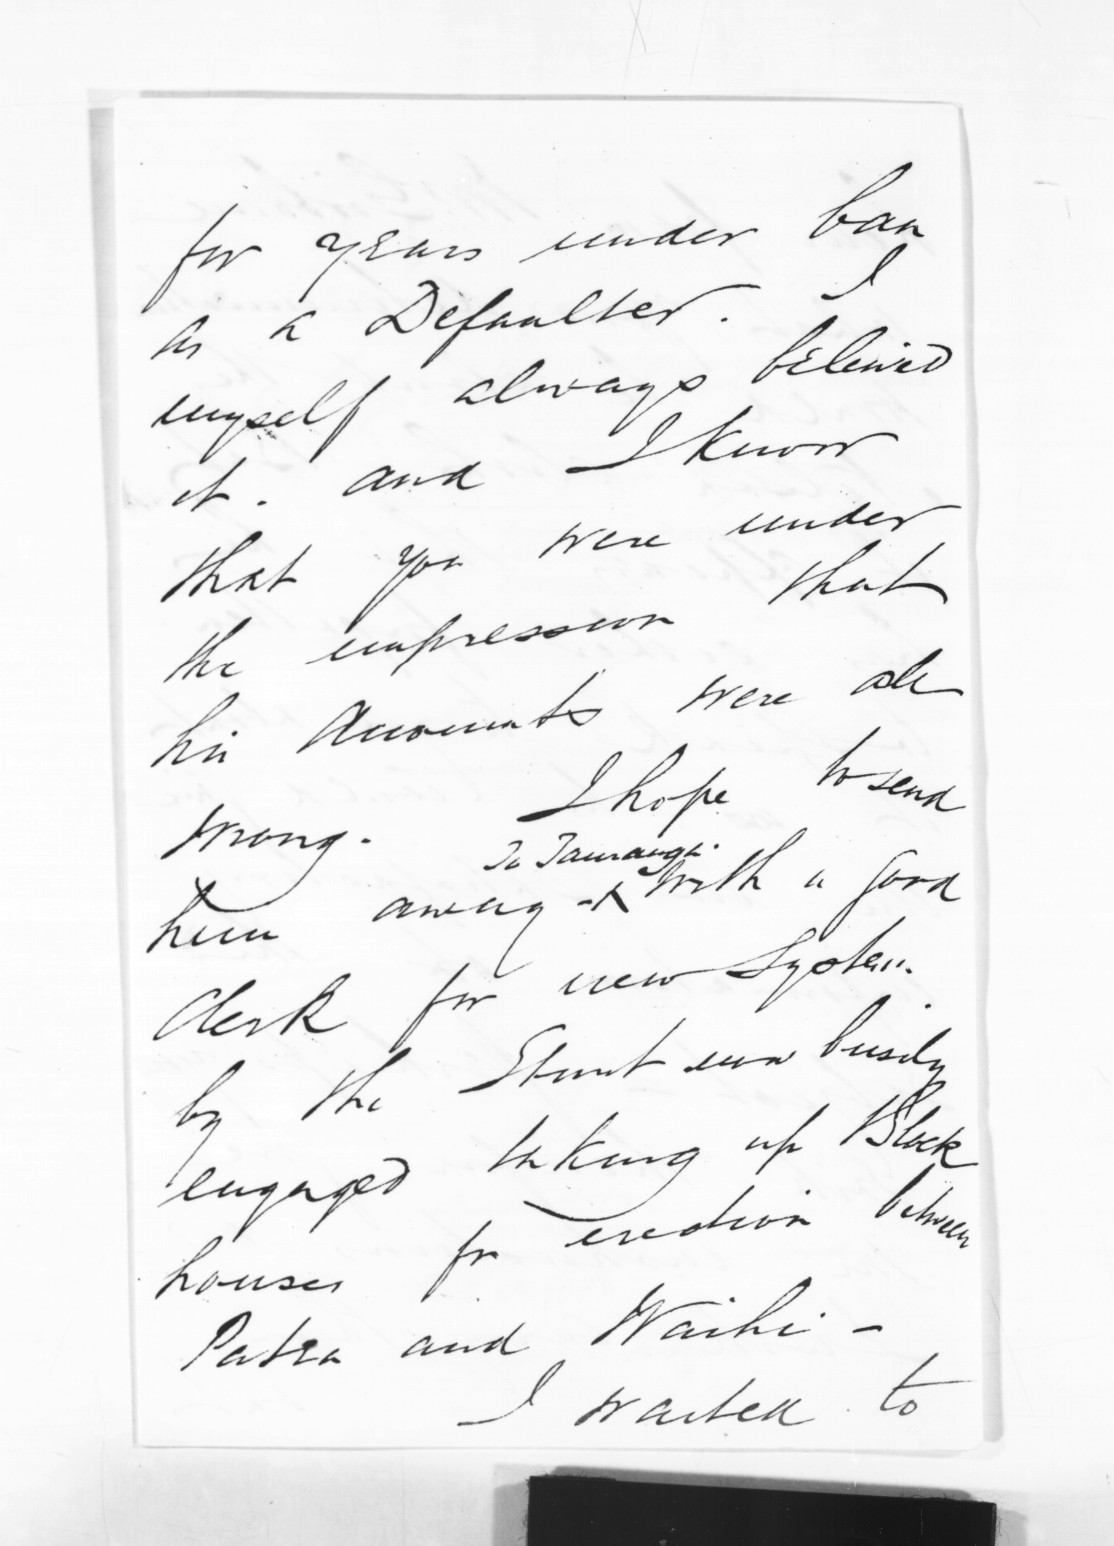 for years under ban
as a Defaulter. I
myself always beleived
it. and I know
that you were under
the impression that
his Accounts were all
wrong. I hope to send
him away - To Tauranga. with a good
Clerk for new System.
by the Sturt now busily
engaged taking up Block
houses for erection between
Patea and Waihi -
I waited to